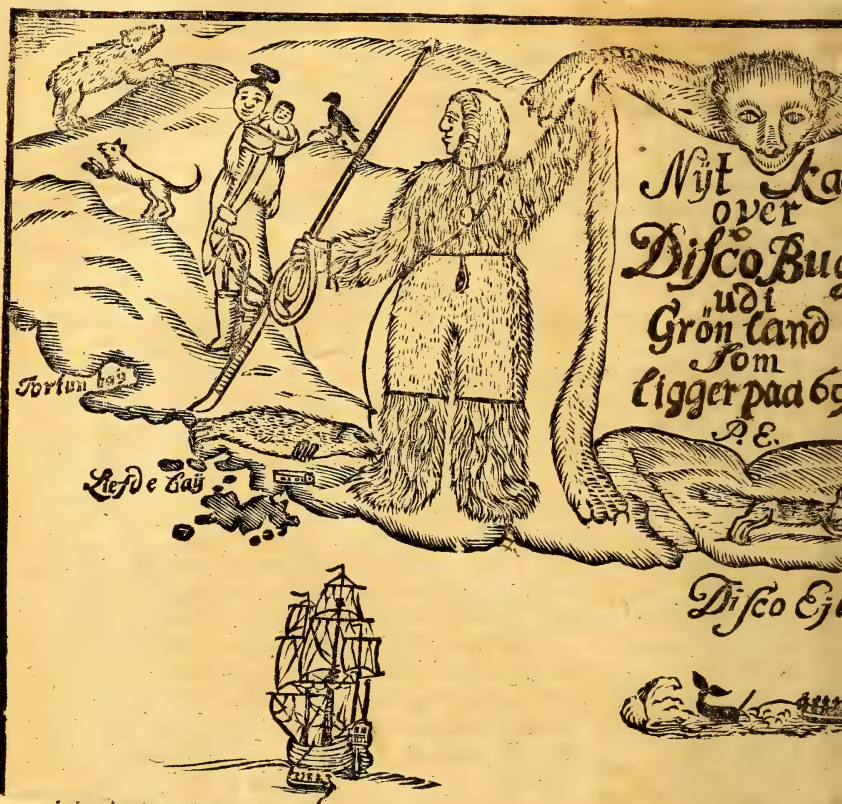 Nÿt Ka
over
Disco Bug
udi
Grönland
som
ligger paa 69
P. E.
Fortun baÿ
Liefde Baÿ
Disco Ejl